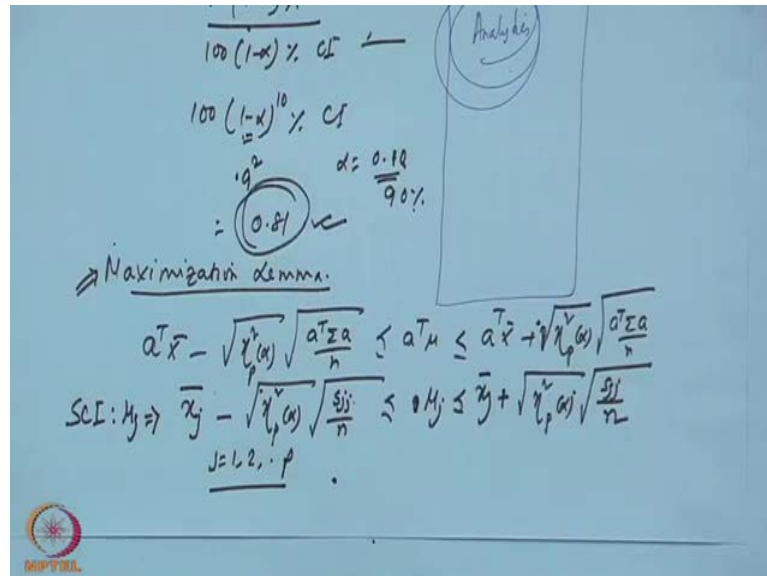 100 (1-α) % CI
Analysis
100 (1-α)¹⁰ % CI
.9² α = 0.10
90%
= 0.81
⇒ Maximization Lemma.
aᵀx̄ - √χ²ₚ(α) √(aᵀΣa/n) ≤ aᵀμ ≤ aᵀx̄ + √χ²ₚ(α) √(aᵀΣa/n)
SCI: μj ⇒ x̄j - √χ²ₚ(α) √(Sjj/n) ≤ μj ≤ x̄j + √χ²ₚ(α) √(Sjj/n)
J=1, 2, . p
NPTEL